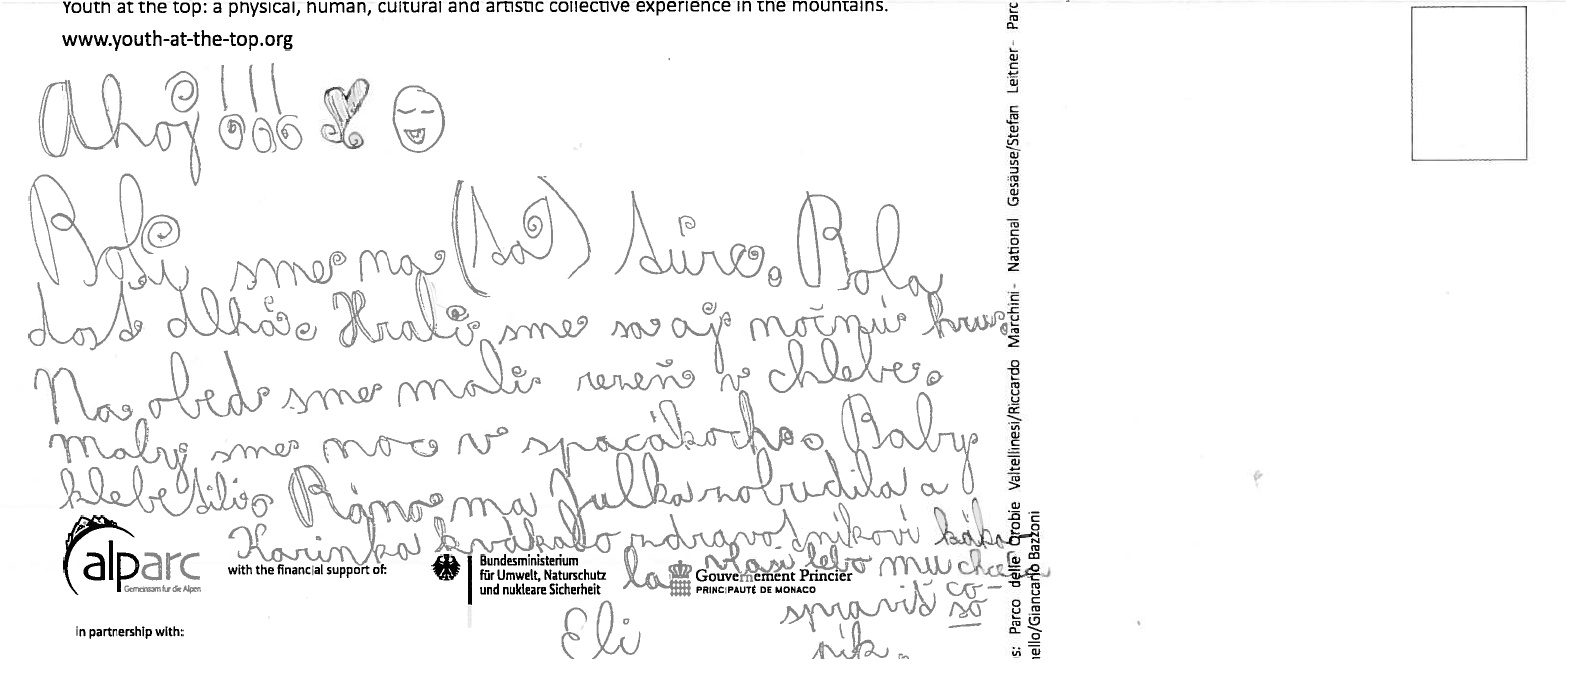 Youth at the top: a physical, human, cultural and artistic collective experience in the mountains.
www.youth-at-the-top.org
Ahoj!!!
Boli sme na (sa) túre. Bola
dosť dlhá. Hrali sme sa aj nočnú hru.
Na obed sme mali rezeň v chlebe.
Mali sme noc v spacákoch. Baby
klebetili. Ráno ma Julka zobudila a
Karinka kvákala zdravotníkovi
la vlasi lebo mu chcela
spraviť co-
so
ník.
Eli
alparc
Gemeinsam für die Alpen
with the financial support of:
Bundesministerium
für Umwelt, Naturschutz
und nukleare Sicherheit
Gouvernement Princier
PRINCIPAUTÉ DE MONACO
in partnership with:
s: Parco delle Orobie Valtellinesi/Riccardo Marchini- National Gesäuse/Stefan Leitner- Parc
nello/Giancarlo Bazzoni